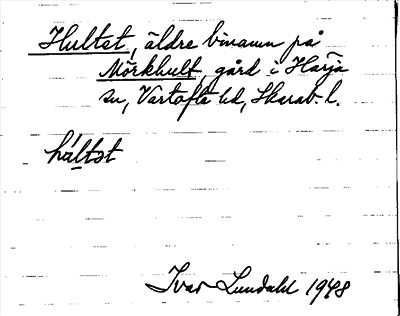 Hultet, äldre binamn på
Mörkhult, gård i Härja
sn, Vartofta hd, Skarab. l.
háltət
Ivar Lundahl 1948